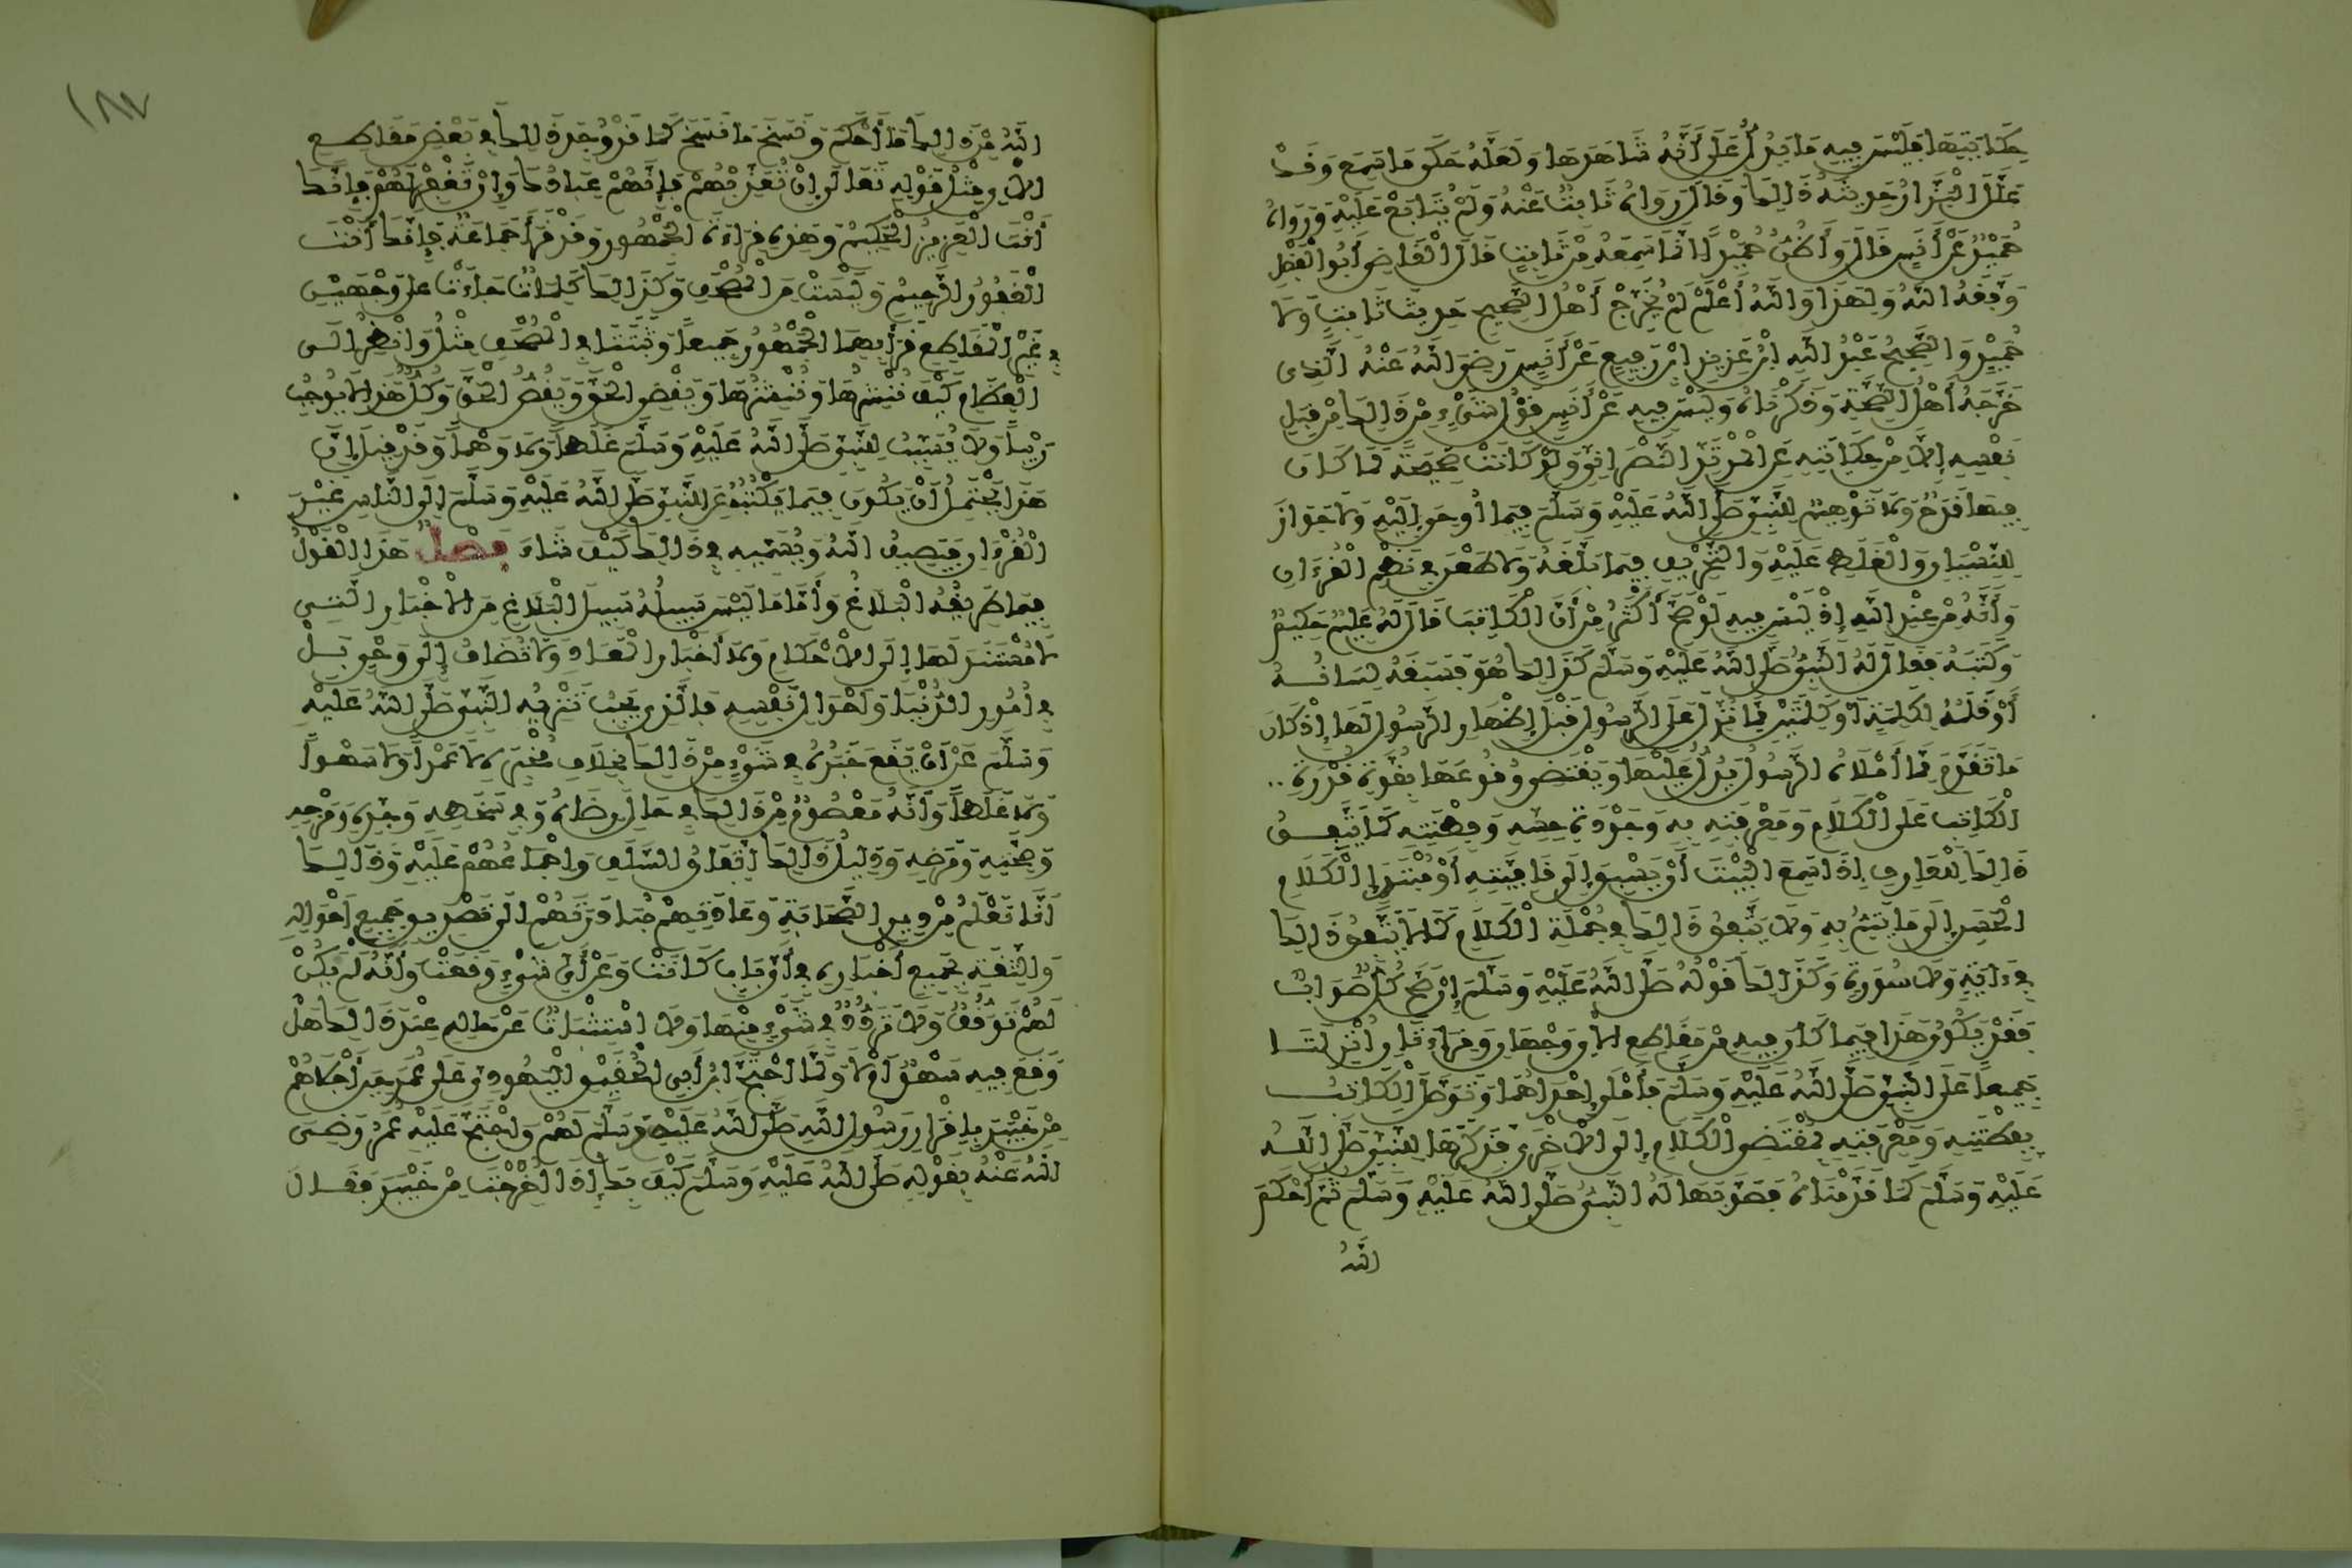 حكايتها فليس فيه ما يدل على أنه شاهدها ولعله حكى ما سمع وقد
علل البزار حديثه ذلك وقال رواه ثابت عنه ولم يتابع عليه ورواه
حميد عن أنس قال وأظن حميدا إنما سمعه من ثابت قال القاضي أبو الفضل
وفقه الله ولهذا والله أعلم لم يخرج أهل الصحيح حديث ثابت ولا
حميد والصحيح عبد الله ابن عزيز ابن رفيع عن أنس رضي الله عنه الذي
خرجه أهل الصحة وذكرناه وليس فيه عن أنس قول شيء من ذلك من قبل
نفسه إلا من حكايته عن المرتد النصراني ولو كانت صحيحة لما كان
فيها قدح ولا توهيم للنبي صلى الله عليه وسلم فيما أوحي إليه ولا جواز
للنسيان والغلط عليه والتحريف فيما بلغه ولا طعن في نظم القرءان
وأنه من عند الله إذ ليس فيه لو صح أكثر من أن الكاتب قال له عليم حكيم
وكتبه فقال له النبي صلى الله عليه وسلم كذلك هو فسبقه لسانه
أو قلمه لكلمة أو كلمتين مما نزل على الرسول قبل إظهار الرسول لها إذ كان
ما تقدم مما أملاه الرسول يدل عليها ويقتضي وقوعها بقوة قدرة ..
الكاتب على الكلام ومعرفته به وجودة حسه وفطنته كما يتفق
ذلك للعارف إذا سمع البيت أن يسبق إلى قافيته أو مبتدإ الكلام
الحسن إلى ما يتم به ولا يتفق ذلك في جملة الكلام كما لا يتفق ذلك
في ءاية ولا سورة وكذلك قوله صلى الله عليه وسلم إن صح كل صواب
فقد يكون هذا فيما كان فيه من مقاطع الآي وجهان وقراءتان أنزلتا
جميعا على النبي صلى الله عليه وسلم فأملى إحداهما وتوصل الكاتب
بفطنته ومعرفته بمقتضى الكلام إلى الأخرى فذكرها للنبي صلى الله
عليه وسلم كما قدمناه فصوبها له النبي صلى الله عليه وسلم ثم أحكم
الله
الله من ذلك ما أحكم ونسخ ما نسخ كما قد وجد ذلك في بعض مقاطع
الآي مثل قوله تعالى إن تعذبهم فإنهم عبادك وإن تغفر لهم فإنك
أنت العزيز الحكيم وهذه قراءة الجمهور وقد قرأ جماعة فإنك أنت
الغفور الرحيم وليست من المصحف وكذلك كلمات جاءت على وجهين
في غير المقاطع قرأ بهما الجمهور جميعا وثبتتا في المصحف مثل وانظر إلى
العظام كيف ننشرها وننشزها ويقضي الحق ويقص الحق وكل هذا لا يوجب
ريبا ولا يسبب للنبي صلى الله عليه وسلم غلطا ولا وهما وقد قيل إن
هذا يحتمل أن يكون فيما يكتبه عن النبي صلى الله عليه وسلم إلى الناس غير
القرءان فيصف الله ويسميه في ذلك كيف شاء فصل هذا القول
فيما طريقه البلاغ وأما ما ليس سبيله سبيل البلاغ من الأخبار التي
لا مستند لها إلى الأحكام ولا أخبار المعاد ولا تضاف إلى وحي بل
في أمور الدنيا وأحوال نفسه فالذي يجب تنزيه النبي صلى الله عليه
وسلم عن أن يقع خبره في شيء من ذلك بخلاف مخبره لا عمدا ولا سهوا
ولا غلطا وأنه معصوم من ذلك في حال رضاه وفي سخطه وجده ومزحه
وصحته ومرضه ودليل ذلك اتفاق السلف وإجماعهم عليه وذلك
أنا نعلم من دين الصحابة وعادتهم مبادرتهم إلى تصديق جميع أحواله
والثقة بجميع أخباره في أي باب كانت وعن أي شيء وقعت وأنه لم يكن
لهم توقف ولا تردد في شيء منها ولا استثبات عن حاله عند ذلك هل
وقع فيه سهو أم لا ولما احتج ابن أبي الحقيق اليهودي على عمر حين أجلاهم
من خيبر بإقرار رسول الله صلى الله عليه وسلم لهم واحتج عليه عمر رضي
الله عنه بقوله صلى الله عليه وسلم كيف بك إذا أخرجت من خيبر فقال